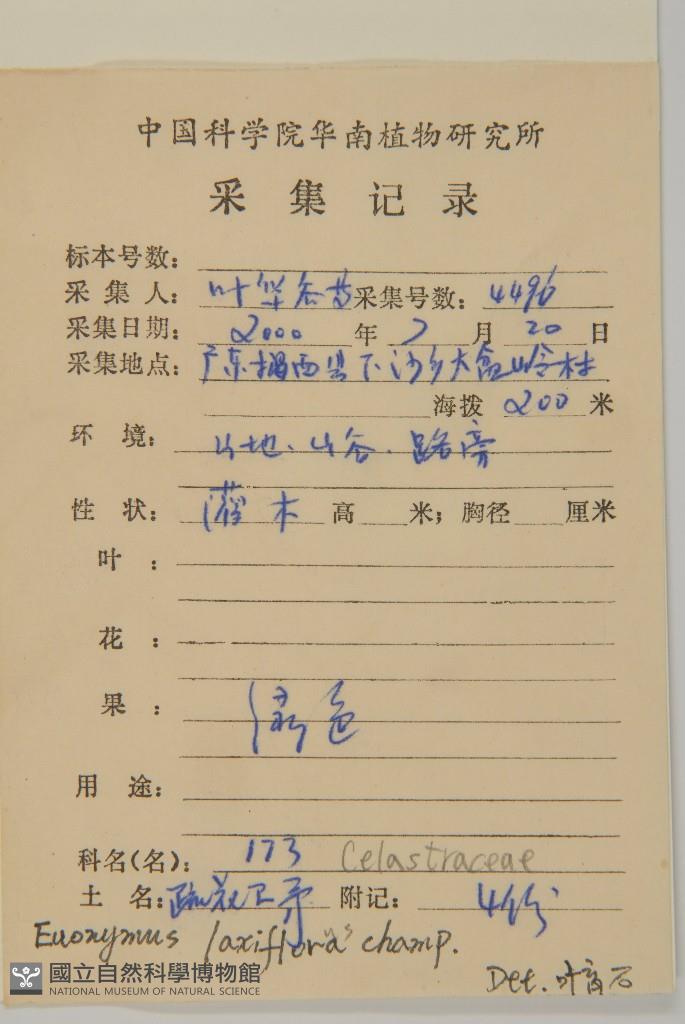 中国科学院华南植物研究所
采集记录
标本号数：
采集人：叶华谷 采集号数：4496
采集日期：2000年7月20日
采集地点：广东揭西县下沙乡大盆岭村
海拨 200 米
环境：山地、山谷、路旁
性状：灌木 高 米；胸径 厘米
叶：
花：
果：绿色
用途：
科名(名)：173 Celastraceae
土名：疏花卫矛 附记：4份
Euonymus laxiflorus champ.
Det. 叶育石
國立自然科學博物館
NATIONAL MUSEUM OF NATURAL SCIENCE